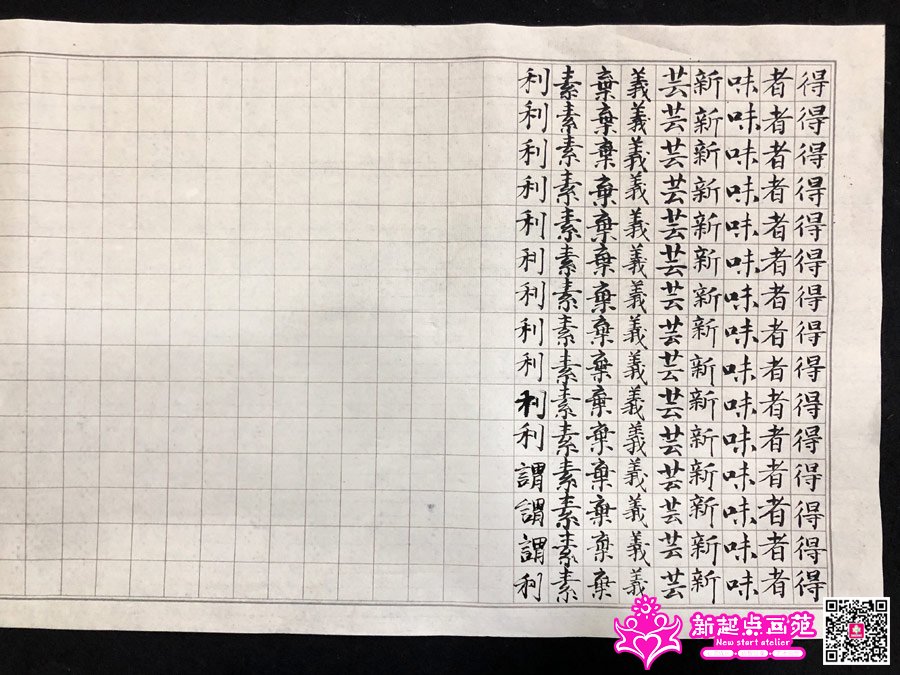 得得得得得得得得得得得得得得得
者者者者者者者者者者者者者者者
味味味味味味味味味味味味味味味
新新新新新新新新新新新新新新新
芸芸芸芸芸芸芸芸芸芸芸芸芸芸芸
義義義義義義義義義義義義義義義
棄棄棄棄棄棄棄棄棄棄棄棄棄棄棄
素素素素素素素素素素素素素素素
利利利利利利利利利利利謂謂謂利
新起点画苑
New start atelier